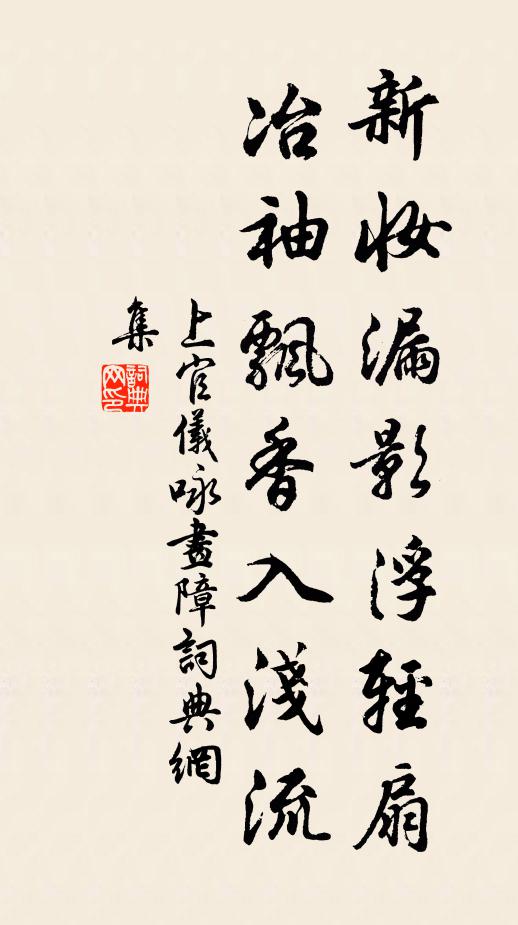 新妝漏影浮輕扇
冶袖飄香入淺流
上官儀咏畫障詞典網
集
詞典
网印